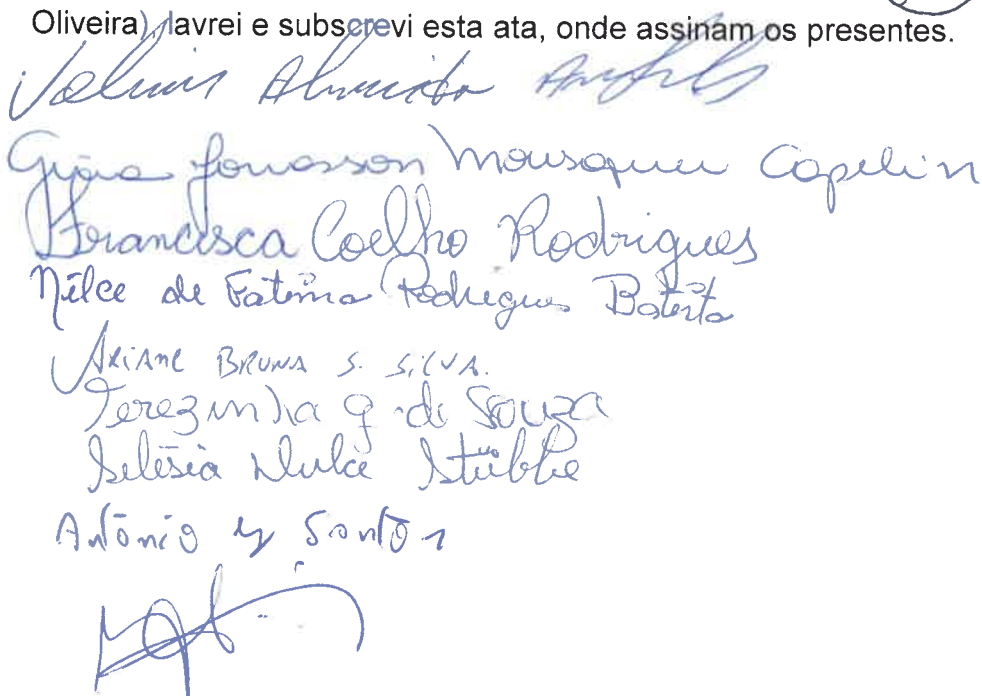 Oliveira), lavrei e subscrevi esta ata, onde assinam os presentes.
Almeida
Mousquer Capelin
Francisca Coelho Rodrigues
Nilce de Fatima Rodrigues Batista
Ariane BRUNA S. SILVA.
Terezinha g de Souza
Dulce Stübbe
Antônio Santos